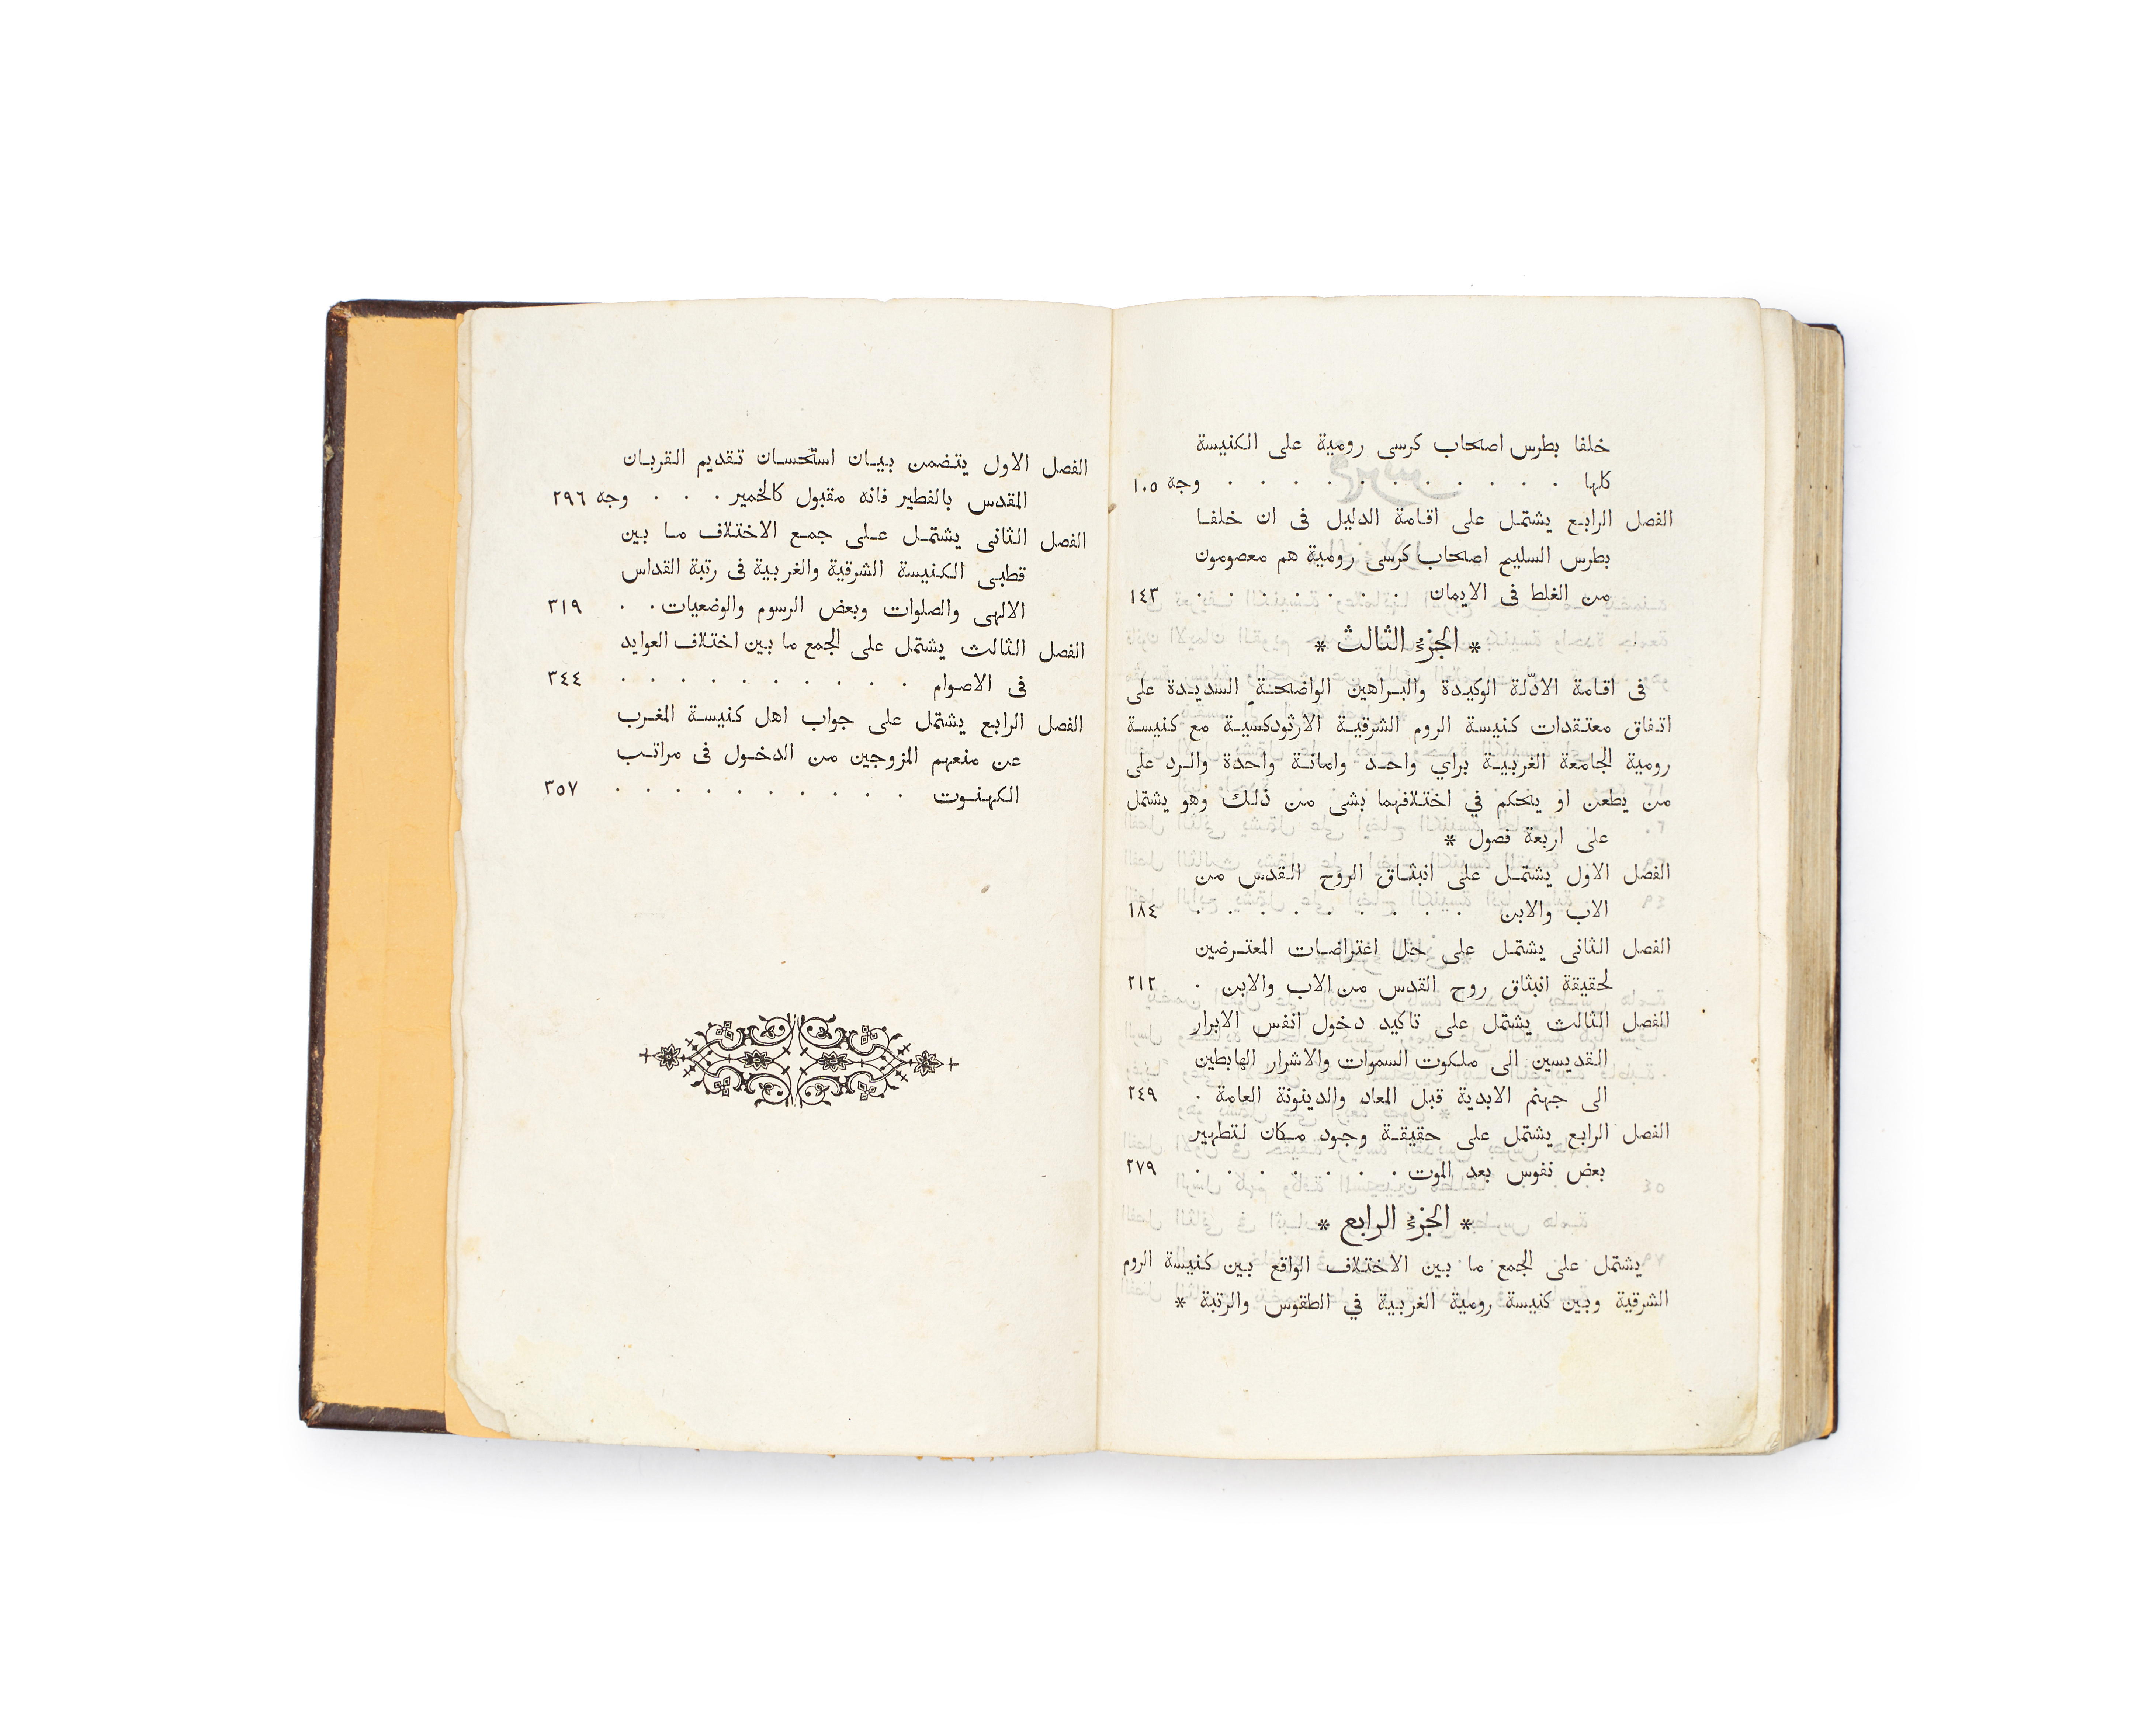 خلفا بطرس اصحاب كرسى رومية على الكنيسة
كلها . . . . . . . . . . . وجه ١٠٥
الفصل الرابع يشتمل على اقامة الدليل فى ان خلفا
بطرس السليح اصحاب كرسى رومية هم معصومون
من الغلط فى الايمان . . . . . . . ١٤٣
* الجزء الثالث *
فى اقامة الادّلة الوكيدة والبراهين الواضحة السديدة على
اتفاق معتقدات كنيسة الروم الشرقية الارثودكسية مع كنيسة
رومية الجامعة الغربية براي واحد وامانة واحدة والرد على
من يطعن او يحكم في اختلافهما بشى من ذلك وهو يشتمل
على اربعة فصول *
الفصل الاول يشتمل على انبثاق الروح القدس من
الاب والابن . . . . . . . . . ١٨٤
الفصل الثانى يشتمل على حل اعتراضات المعترضين
لحقيقة انبثاق روح القدس من الاب والابن . ٢١٢
الفصل الثالث يشتمل على تاكيد دخول انفس الابرار
القديسين الى ملكوت السموات والاشرار الهابطين
الى جهنم الابدية قبل المعاد والدينونة العامة . ٢٤٩
الفصل الرابع يشتمل على حقيقة وجود مكان لتطهير
بعض نفوس بعد الموت . . . . . . . ٢٧٩
* الجزء الرابع *
يشتمل على الجمع ما بين الاختلاف الواقع بين كنيسة الروم
الشرقية وبين كنيسة رومية الغربية في الطقوس والرتبة *
الفصل الاول يتضمن بيان استحسان تقديم القربان
المقدس بالفطير فانه مقبول كالخمير . . . وجه ٢٩٦
الفصل الثانى يشتمل على جمع الاختلاف ما بين
قطبى الكنيسة الشرقية والغربية فى رتبة القداس
الالهى والصلوات وبعض الرسوم والوضعيات . . ٣١٩
الفصل الثالث يشتمل على الجمع ما بين اختلاف العوايد
فى الاصوام . . . . . . . . . . ٣٤٤
الفصل الرابع يشتمل على جواب اهل كنيسة المغرب
عن منعهم المزوجين من الدخول فى مراتب
الكهنوت . . . . . . . . . . ٣٥٧